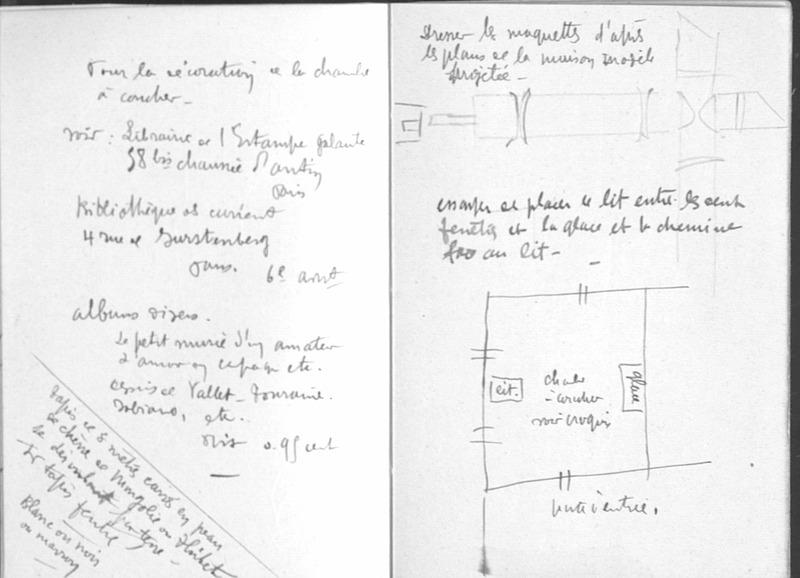 Pour la décoration de la chambre
à coucher -
voir : Librairie de l'Estampe galante
58 bis chaussée d'antin
Paris
Bibliothèque des curieux
4 rue de Furstenberg
Paris. 6e arrdt
albums divers.
Le petit musée d'un amateur
d'amour etc.
dessins de Vallet - Touraine.
etc.
Prix 0.95 cent
tapis de 5 mètres carrés en peau
de chèvre de Mongolie ou Thibet
tapis feutre
Blanc ou noir
ou marron
Dresser les maquettes d'après
les plans de la maison modèle
projetée -
essayer de placer le lit entre les deux
fenêtres et la glace et la cheminée
au lit -
lit.
glace
chambre
à coucher
voir croquis
porte d'entrée.